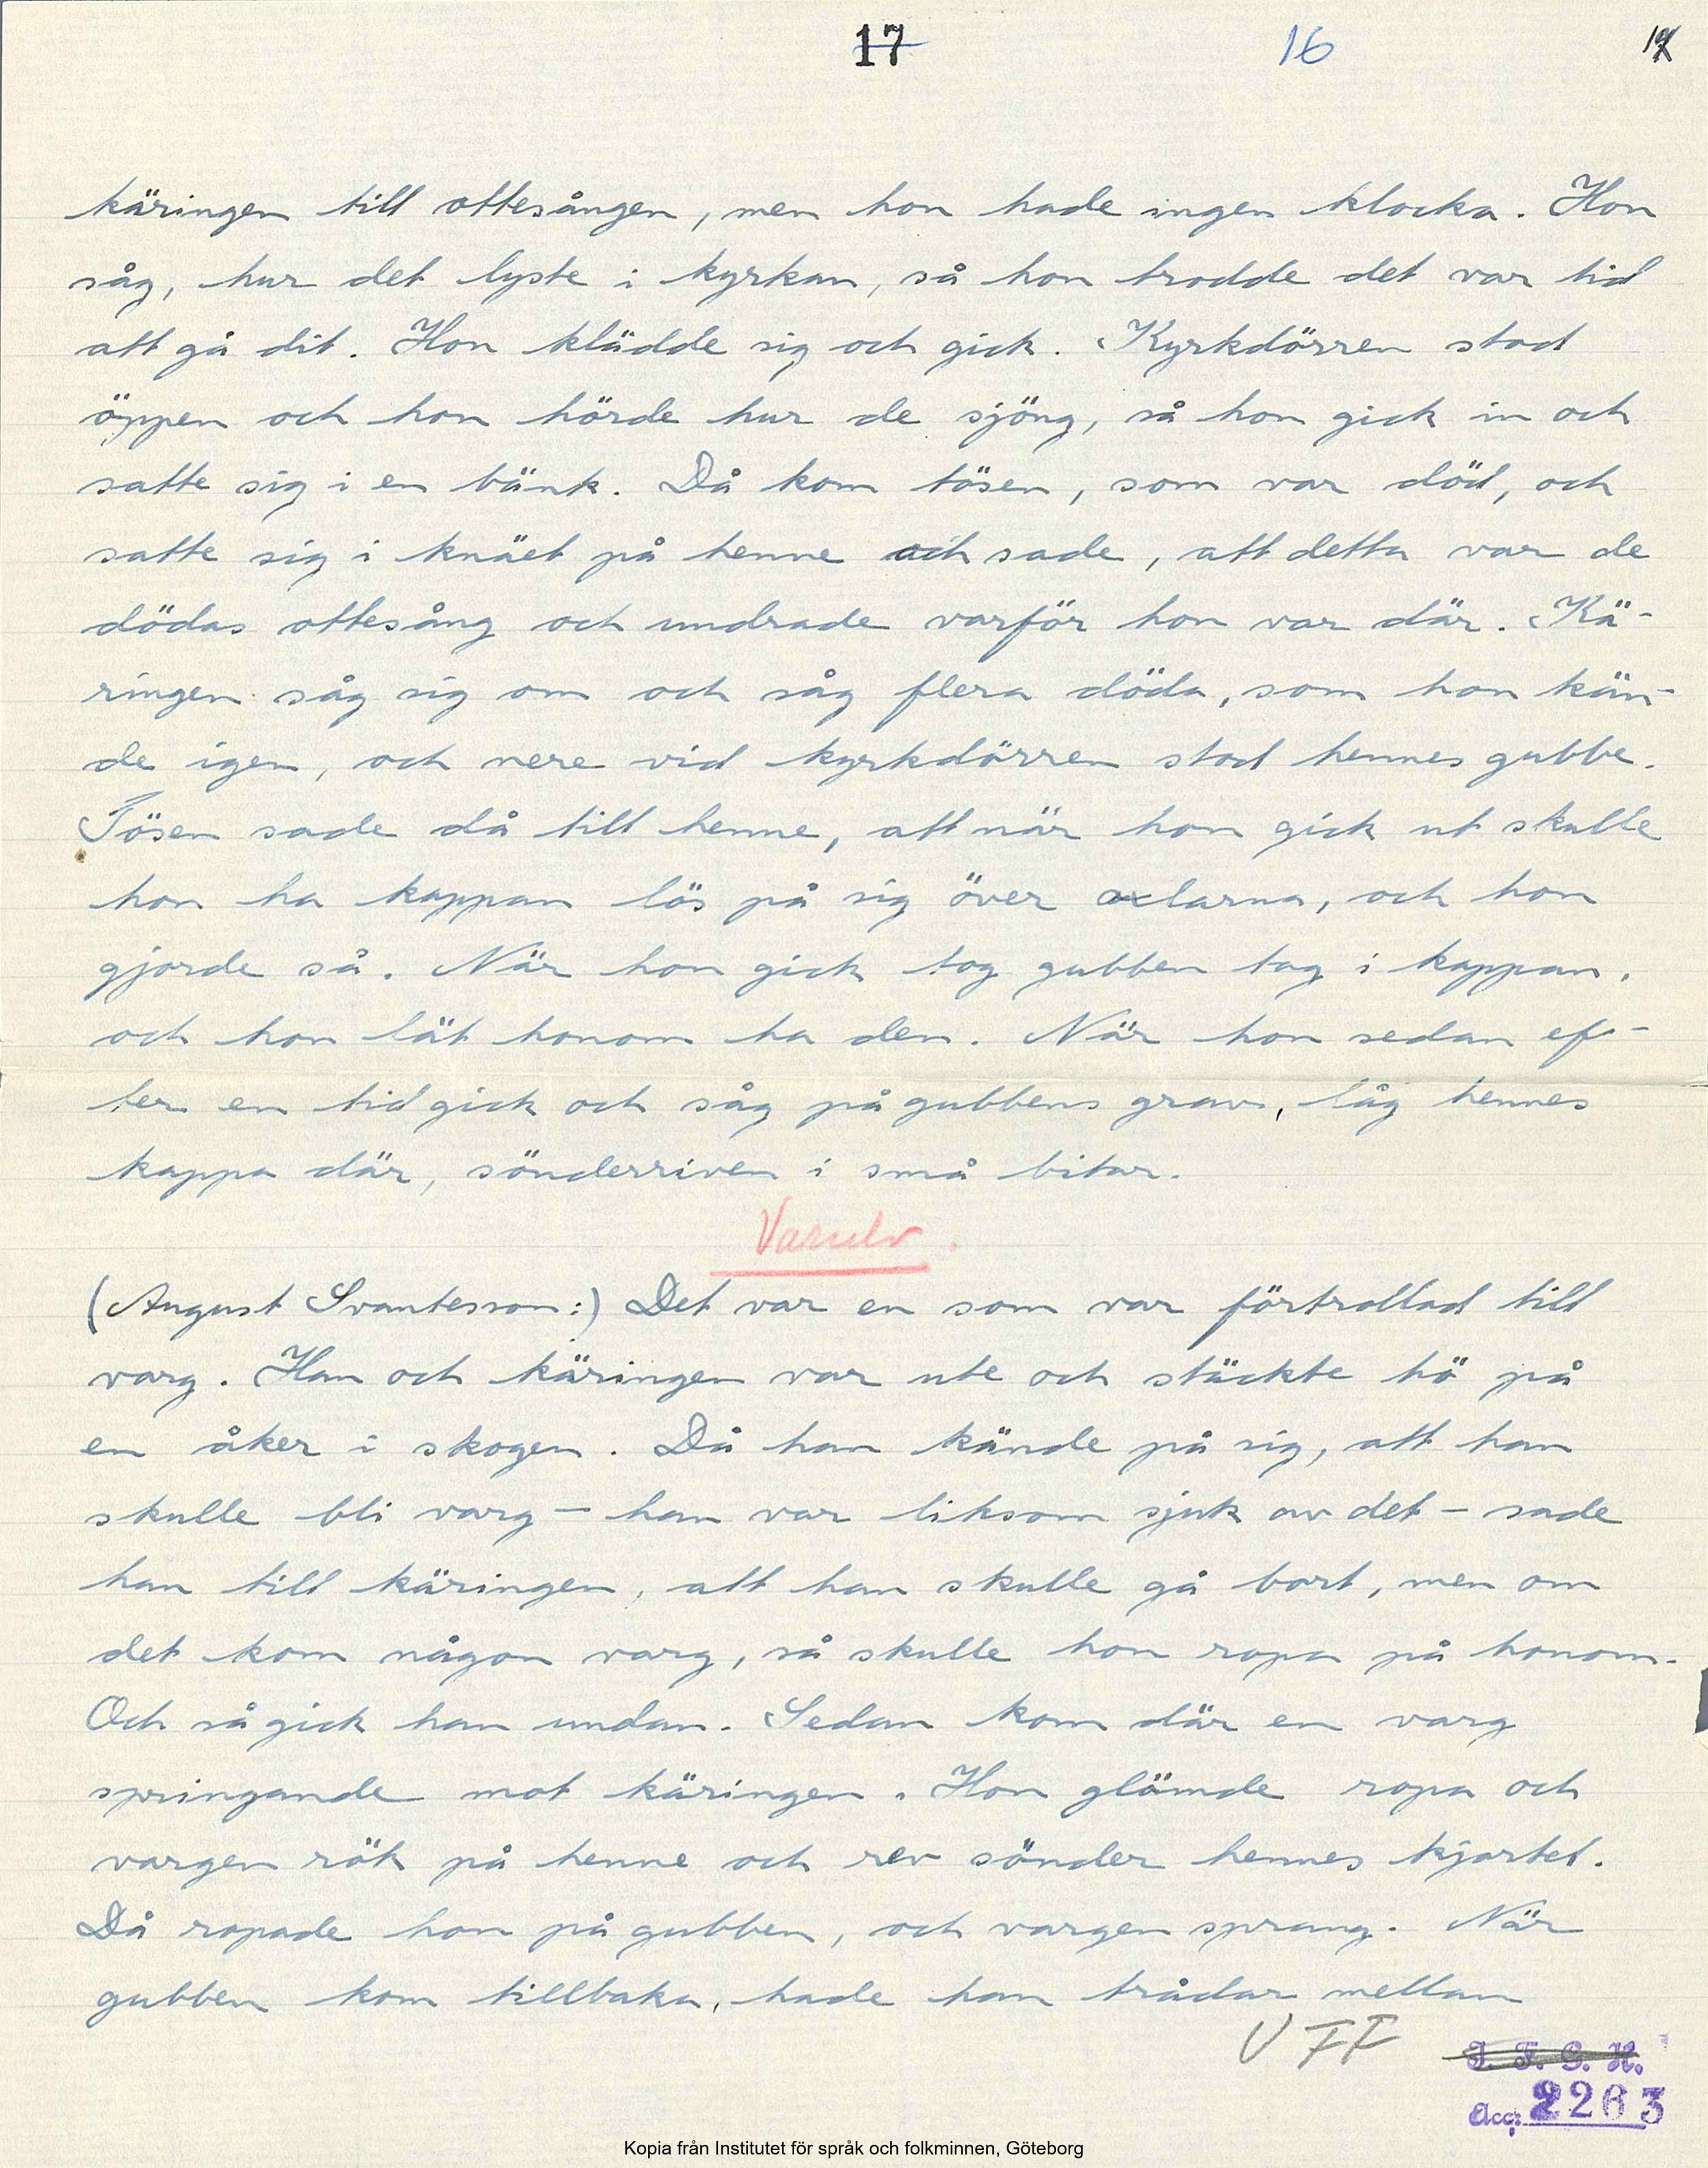 17 16 17
käringen till ottesången, men hon hade ingen klocka. Hon
såg, hur det lyste i kyrkan, så hon trodde det var tid
att gå dit. Hon klädde sig och gick. Kyrkdörren stod
öppen och hon hörde hur de sjöng, så hon gick in och
satte sig i en bänk. Då kom tösen, som var död, och
satte sig i knäet på henne och sade, att detta var de
dödas ottesång och undrade varför hon var där. Kä-
ringen såg sig om och såg flera döda, som hon kän-
de igen, och nere vid kyrkdörren stod hennes gubbe.
Tösen sade då till henne, att när hon gick ut skulle
hon ha kappan lös på sig över axlarna, och hon
gjorde så. När hon gick tog gubben tag i kappan,
och hon lät honom ha den. När hon sedan ef-
ter en tid gick och såg på gubbens grav, låg hennes
kappa där, sönderriven i små bitar.
Varulv.
(August Svantesson:) Det var en som var förtrollad till
varg. Han och käringen var ute och stäckte hö på
en åker i skogen. Då han kände på sig, att han
skulle bli varg - han var liksom sjuk av det - sade
han till käringen, att han skulle gå bort, men om
det kom någon varg, så skulle hon ropa på honom.
Och så gick han undan. Sedan kom där en varg
springande mot käringen. Hon glömde ropa och
vargen rök på henne och rev sönder hennes kjortel.
Då ropade hon på gubben, och vargen sprang. När
gubben kom tillbaka, hade han trådar mellan
VFF
I. F. G. H.
Acc: 2263
Kopia från Institutet för språk och folkminnen, Göteborg